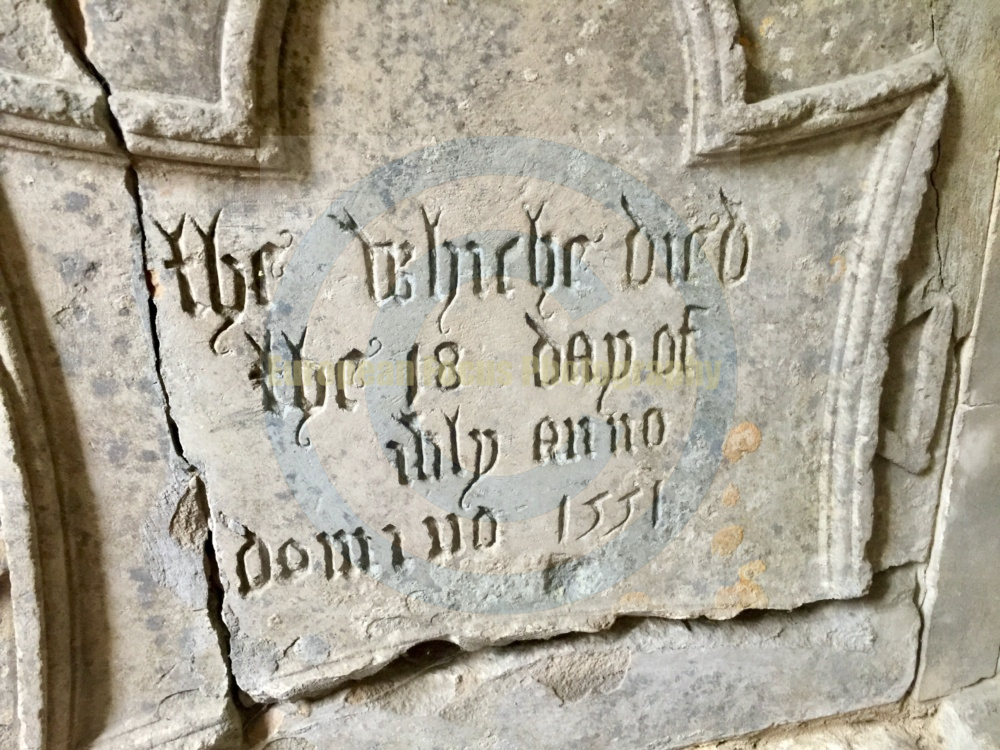 the whiche died
the 18 day of
iuly anno
domino 1551